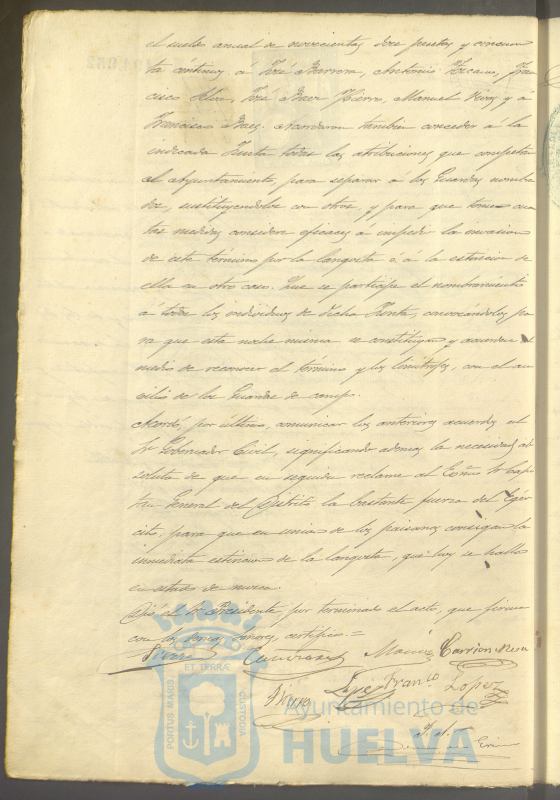 el sueldo anual de novecientas doce pesetas y cincuen
ta céntimos á José Barrera, Antonio Toscano, Fran
cisco José Baez Hierro, Manuel y á
Francisco Baez. Acordaron tambien conceder á la
indicada Junta todas las atribuciones que competen
al Ayuntamiento, para separar á los Guardas nombra
dos, sustituyendolos con otros, y para que tome cuan
tas medidas considere eficaces á impedir la invasion
de este término por la langosta ó á la estincion de
ella en otro caso. Que se participe el nombramiento
á todos los individuos de dicha Junta, convocándolos pa
ra que esta noche misma se constituya y acuerden el
medio de reconocer el término y los limítrofes, con el au
xilio de los Guardas de campo.
Acordó, por último, comunicar los anteriores acuerdos al
Sr Gobernador Civil, significando ademas la necesidad ab
soluta de que en seguida reclame al Exmo Sr Capi
tan General del Distrito la bastante fuerza del Ejér
cito, para que en union de los paisanos consigan la
inmediata estincion de la langosta, que hoy se halla
en estado de mosca.
Dió el Sr Presidente por terminado el acto, que firma
con los demas Señores, certifico.=
Garrion
Lopez
PORTUS MARIS ET TERRÆ CUSTODIA
Ayuntamiento de
HUELVA